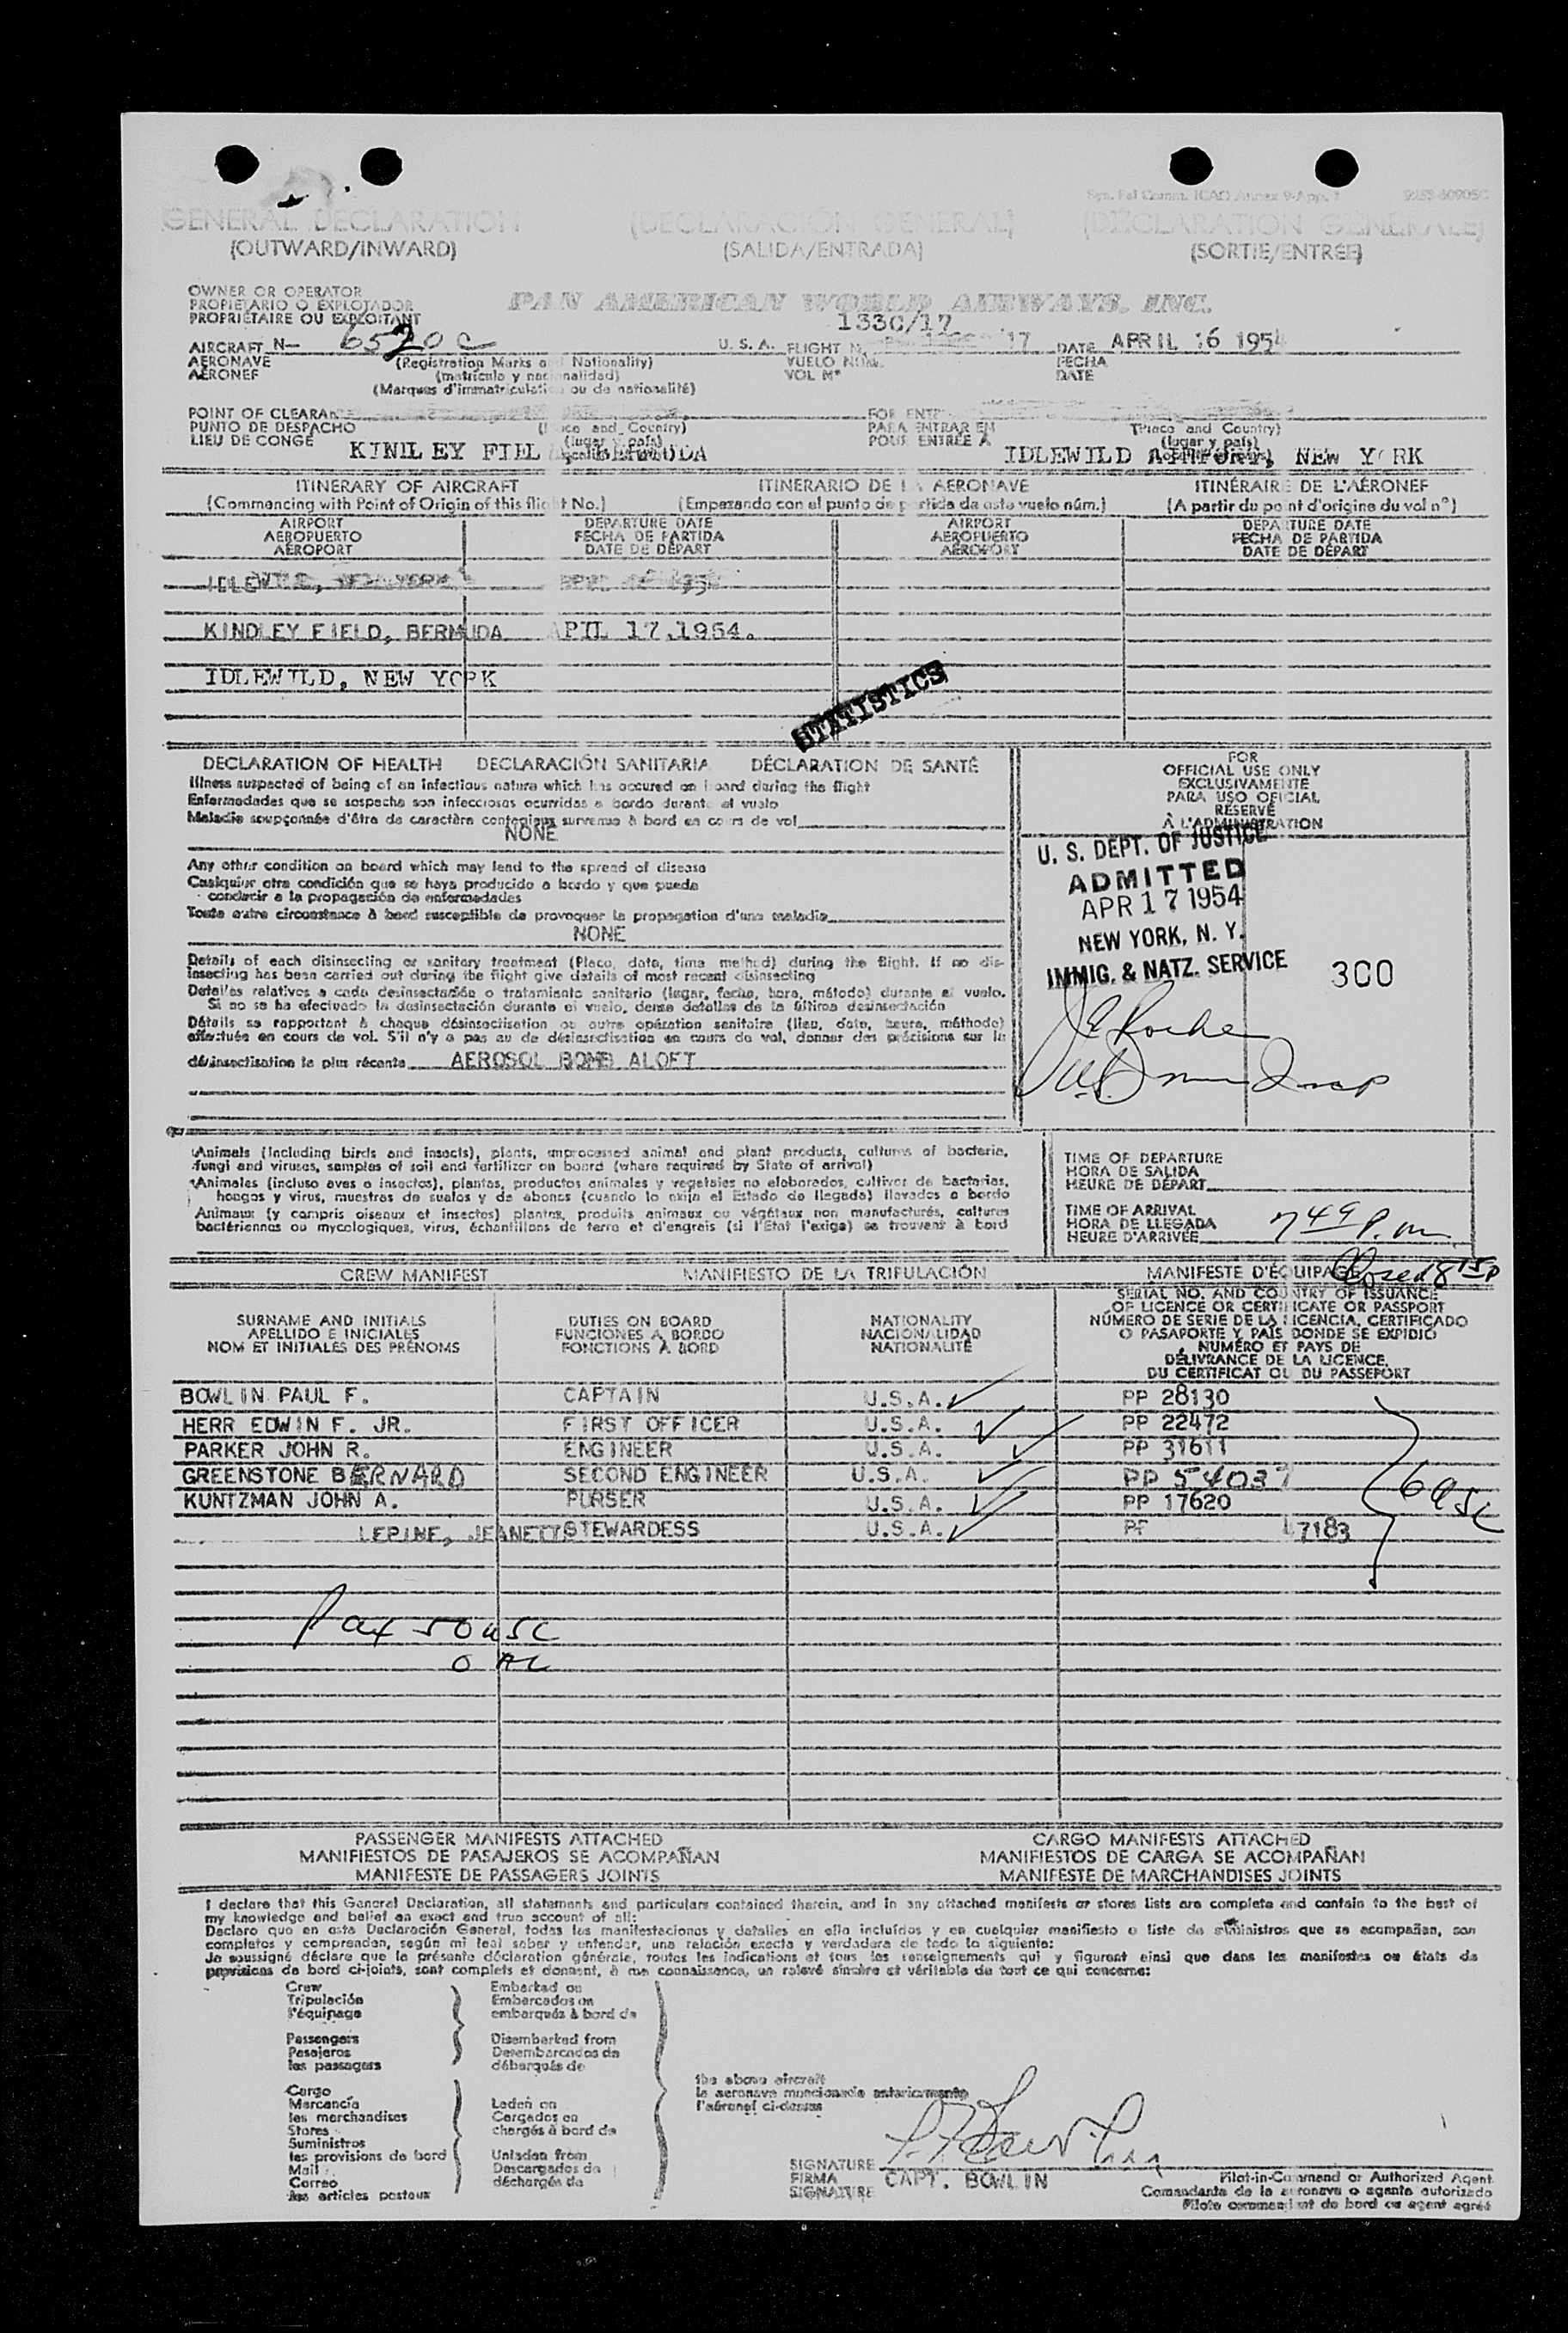 Syn. Fal Comm. ICAO Annex 9-App. 1
GENERAL DECLARATION (DECLARACIÓN GENERAL) (DÉCLARATION GÉNÉRALE)
(OUTWARD/INWARD) (SALIDA/ENTRADA) (SORTIE/ENTRÉE)
OWNER OR OPERATOR
PROPIETARIO O EXPLOTADOR
PROPRIÉTAIRE OU EXPLOITANT
PAN AMERICAN WORLD AIRWAYS, INC.
133C/17
AIRCRAFT N- 6520C U. S. A. FLIGHT N 17 DATE APRIL 16 1954
AERONAVE (Registration Marks and Nationality) VUELO NÚM. FECHA
AÉRONEF (matrícula y nacionalidad) VOL Nº DATE
(Marques d'immatriculation ou de nationalité)
POINT OF CLEARAN FOR ENT
PUNTO DE DESPACHO (Place and Country) PARA ENTRAR EN (Place and Country)
LIEU DE CONGÉ (lugar y país) POUR ENTRÉE À (lugar y país)
KINDLEY FIEL BERMUDA IDLEWILD AIRPORT, NEW YORK
ITINERARY OF AIRCRAFT ITINERARIO DE LA AERONAVE ITINÉRAIRE DE L'AÉRONEF
(Commencing with Point of Origin of this flight No.) (Empezando con el punto de partida de este vuelo núm.) (A partir du point d'origine du vol nº)
AIRPORT DEPARTURE DATE AIRPORT DEPARTURE DATE
AEROPUERTO FECHA DE PARTIDA AEROPUERTO FECHA DE PARTIDA
AÉROPORT DATE DE DÉPART AÉROPORT DATE DE DÉPART
IDLEWILD, NEW YORK
KINDLEY FIELD, BERMUDA APIL 17,1954.
IDLEWILD, NEW YORK
STATISTICS
DECLARATION OF HEALTH DECLARACIÓN SANITARIA DÉCLARATION DE SANTÉ
Illness suspected of being of an infectious nature which has occured on board during the flight
Enfermedades que se sospecha son infecciosas ocurridas a bordo durante el vuelo
Maladie soupçonnée d'être de caractère contagieux survenue à bord en cours de vol
NONE
Any other condition on board which may lead to the spread of disease
Cualquier otra condición que se haya producido a bordo y que puede
conducir a la propagación de enfermedades
Toute autre circonstance à bord susceptible de provoquer la propagation d'une maladie
NONE
Details of each disinsecting or sanitary treatment (Place, date, time method) during the flight. If no dis-
insecting has been carried out during the flight give details of most recent disinsecting
Detalles relativos a cada desinsectación o tratamiento sanitario (lugar, fecha, hora, método) durante el vuelo.
Si no se ha efectuado la desinsectación durante el vuelo, dense detalles de la última desinsectación
Détails se rapportant à chaque désinsectisation ou autre opération sanitaire (lieu, date, heure, méthode)
effectuée en cours de vol. S'il n'y a pas eu de désinsectisation en cours de vol, donner des précisions sur la
désinsectisation la plus récente AEROSOL BOMB ALOFT
FOR
OFFICIAL USE ONLY
EXCLUSIVAMENTE
PARA USO OFICIAL
RÉSERVÉ
À L'ADMINISTRATION
U. S. DEPT. OF JUSTICE
ADMITTED
APR 17 1954
NEW YORK, N. Y.
IMMIG. & NATZ. SERVICE
300
Animals (Including birds and insects), plants, unprocessed animal and plant products, cultures of bacteria,
fungi and viruses, samples of soil and fertilizer on board (where required by State of arrival)
Animales (incluso aves e insectos), plantas, productos animales y vegetales no elaborados, cultivos de bacterias,
hongos y virus, muestras de suelos y de abonos (cuando lo exija el Estado de llegada) llevados a bordo
Animaux (y compris oiseaux et insectes) plantes, produits animaux ou végétaux non manufacturés, cultures
bactériennes ou mycologiques, virus, échantillons de terre et d'engrais (si l'État l'exige) se trouvent à bord
TIME OF DEPARTURE
HORA DE SALIDA
HEURE DE DÉPART
TIME OF ARRIVAL
HORA DE LLEGADA
HEURE D'ARRIVÉE
749 P.m.
Closed 815P
CREW MANIFEST MANIFIESTO DE LA TRIPULACIÓN MANIFESTE D'ÉQUIPA
SURNAME AND INITIALS
APELLIDO E INICIALES
NOM ET INITIALES DES PRÉNOMS
DUTIES ON BOARD
FUNCIONES A BORDO
FONCTIONS À BORD
NATIONALITY
NACIONALIDAD
NATIONALITÉ
SERIAL NO. AND COUNTRY OF ISSUANCE
OF LICENCE OR CERTIFICATE OR PASSPORT
NÚMERO DE SERIE DE LA LICENCIA, CERTIFICADO
O PASAPORTE Y PAÍS DONDE SE EXPIDIÓ
NUMÉRO ET PAYS DE
DÉLIVRANCE DE LA LICENCE,
DU CERTIFICAT OU DU PASSEPORT
BOWLIN PAUL F. CAPTAIN U.S.A. PP 28130
HERR EDWIN F. JR. FIRST OFFICER U.S.A. PP 22472
PARKER JOHN R. ENGINEER U.S.A. PP 31611
GREENSTONE BERNARD SECOND ENGINEER U.S.A. PP 54037
KUNTZMAN JOHN A. PURSER U.S.A. PP 17620
LEPINE, JEANETT STEWARDESS U.S.A. PP 47183
6 USC
Pax 50 USC
0 AL
PASSENGER MANIFESTS ATTACHED CARGO MANIFESTS ATTACHED
MANIFIESTOS DE PASAJEROS SE ACOMPAÑAN MANIFIESTOS DE CARGA SE ACOMPAÑAN
MANIFESTE DE PASSAGERS JOINTS MANIFESTE DE MARCHANDISES JOINTS
I declare that this General Declaration, all statements and particulars contained therein, and in any attached manifests or stores lists are complete and contain to the best of
my knowledge and belief an exact and true account of all:
Declaro que en esta Declaración General, todas las manifestaciones y detalles en ella incluídos y en cualquier manifiesto o liste de suministros que se acompañan, son
completos y comprenden, según mi leal saber y entender, una relación exacta y verdadera de todo lo siguiente:
Je soussigné déclare que la présente déclaration générale, toutes les indications et tous les renseignements qui y figurent ainsi que dans les manifestes ou états de
provisions de bord ci-joints, sont complets et donnent, à ma connaissance, un relevé sincère et véritable de tout ce qui concerne:
Crew
Tripulación
l'équipage
Passengers
Pasajeros
les passagers
Cargo
Mercancía
les marchandises
Stores
Suministros
les provisions de bord
Mail
Correo
les articles postaux
Embarked on
Embarcados en
embarqués à bord de
Disembarked from
Desembarcados de
débarqués de
Laden on
Cargados en
chargés à bord de
Unladen from
Descargados de
déchargés de
the above aircraft
la aeronave mencionada anteriormente
l'aéronef ci-dessus
SIGNATURE
FIRMA
SIGNATURE
P. F. Bowlin
CAPT. BOWLIN
Pilot-in-Command or Authorized Agent
Comandante de la aeronave o agente autorizado
Pilote commandant de bord ou agent agréé